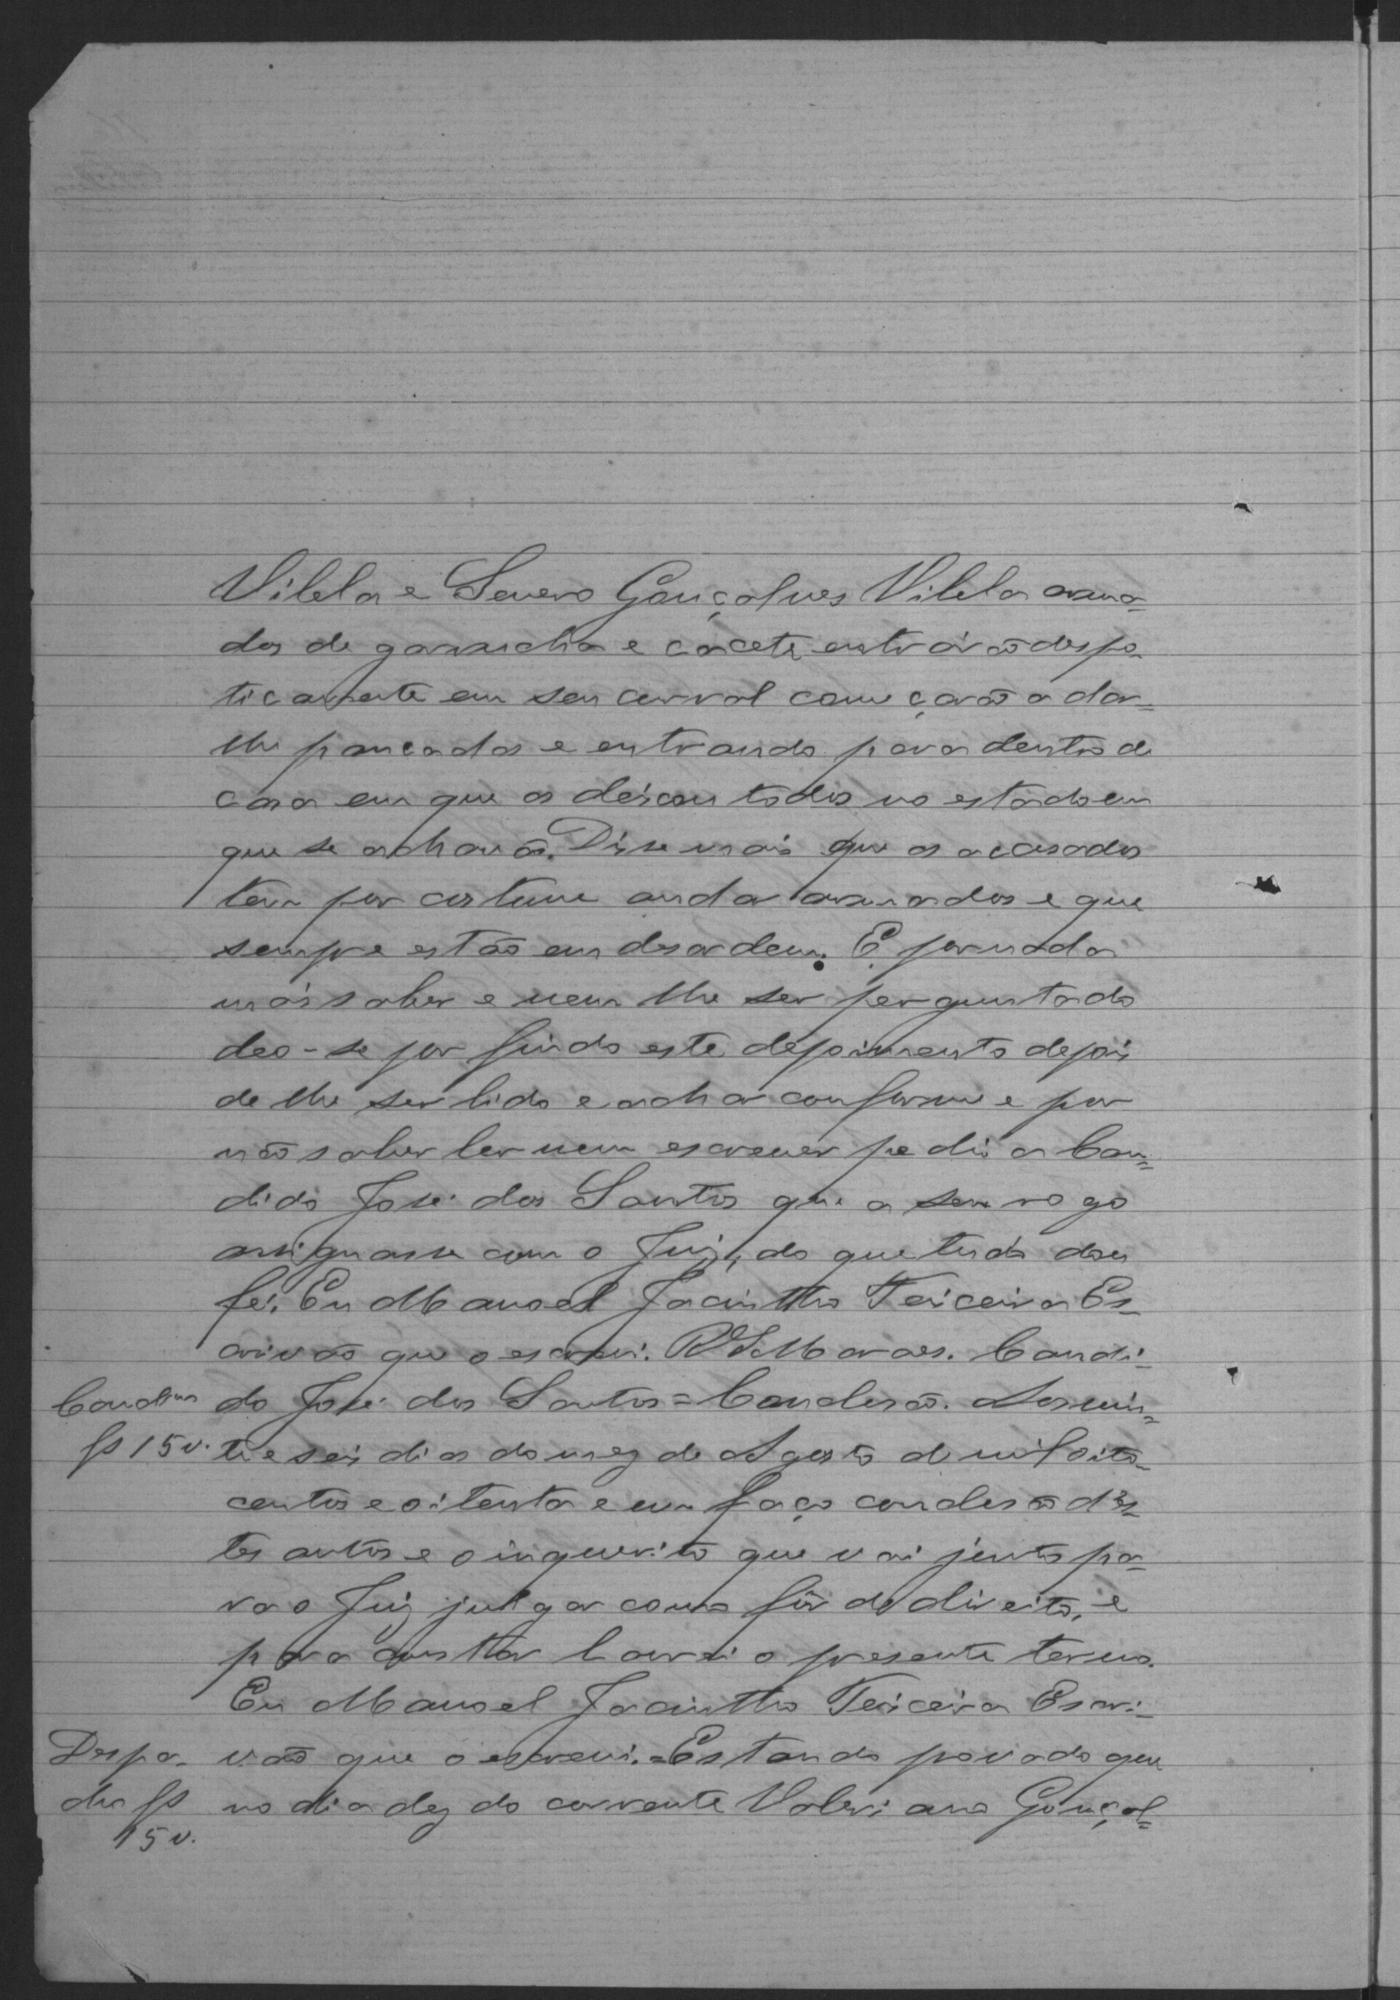 Vilela e Severo Gonçalves Vilela arma-
dos de garrucha e cacete entrárão despo-
ticamente em seu curral começarão a dar-
lhe pancadas e entrando para dentro de
casa em que os deixou todos no estado em
que se achavão. Disse mais que os accusados
tem por costume andar armados e que
sempre estão em desordem. E por nada
mais saber e nem lhe ser perguntado
deo-se por findo este depoimento depois
de lhe ser lido e achar conforme e por
não saber ler nem escrever pediu a Can-
dido José dos Santos que a seu rogo
assignasse com o Juiz, do que tudo dou
fé. Eu Manoel Jacintho Teixeira Es-
crivão que o escrevi. R S Moraes. Candi-
Condsm do José dos Santos = Conclusão. Aos vin-
fs 15 v. te e seis dias do mez de Agosto de mil oito-
centos e oitenta e um faço conclusão d'es-
tes autos e o inquerito que vai junto pa-
ra o Juiz julgar como fôr de direito, e
para constar lavrei o presente termo.
Eu Manoel Jacintho Teixeira Escri-
Despa- vão que o escrevi. = Estando provado que
cho fs no dia dez do corrente Valeriano Gonçal-
15 v.